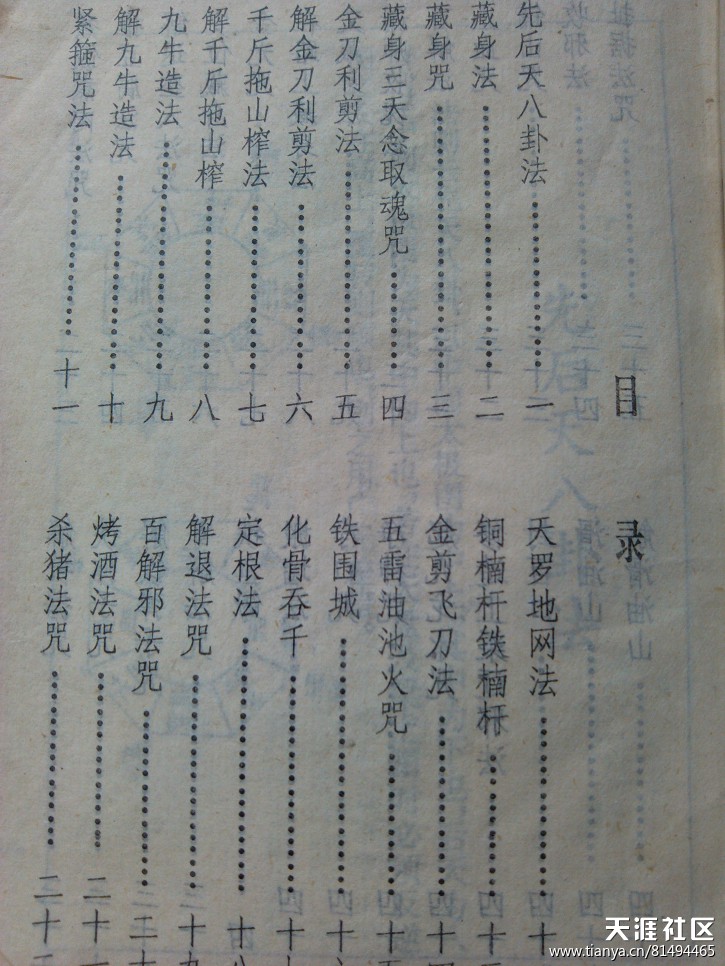 目录
先后天八卦法……一
藏身法……二
藏身咒……三
藏身三天念取魂咒……四
金刀利剪法……五
解金刀利剪法……六
千斤拖山榨法……七
解千斤拖山榨……八
九牛造法……九
解九牛造法……十
紧箍咒法……十一
天罗地网法……十
铜楠杆铁楠杆……十
金剪飞刀法……十四
五雷油池火咒……十五
铁围城……十
化骨吞千……十
定根法……十八
解退法咒……十九
百解邪法咒……二十
烤酒法咒……二十一
杀猪法咒……二十
天涯社区
www.tianya.cn/81494465